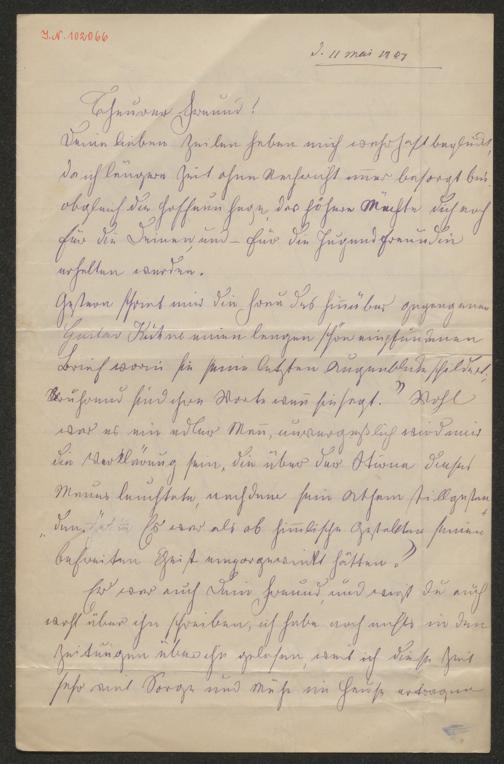 J.N. 102066
d. 11 Mai 1901
Theurer Freund!
Deine lieben Zeilen haben mich wahrhaft beglückt,
da ich längere Zeit ohne Nachricht immer besorgt bin
obgleich die Hoffnung hege, das höhere Mächte dich noch
für die Deinen und – für die Jugendfreundin
erhalten werden.
Gestern schrieb mir die Frau des hinüber gegangenen
Gustav einen langen schön empfundenen
Brief worin sie seine letzten Augenblicke schildert,
Rührend sind ihre Worte wenn sie sagt. "Wohl
war es ein edler Mann, unvergeßlich wird mir
die Verklärung sein, die über der Stirne dieses
Mannes leuchtete, nachdem sein Athem stillgestan
den, Es war als ob himmlische Gestalten seinen
befreiten Geist emporgewinkt hätten."
Er war auch Dein Freund, und wirst du auch
wohl über ihn schreiben, ich habe noch nichts in den
Zeitungen über ihn gelesen, weil ich diese Zeit
sehr viel Sorge und Mühe im Hause ertragen